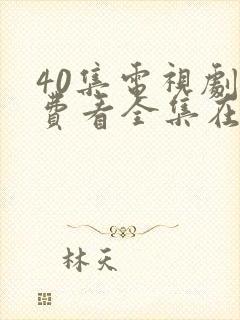 40集電視劇
費看全集在
林天